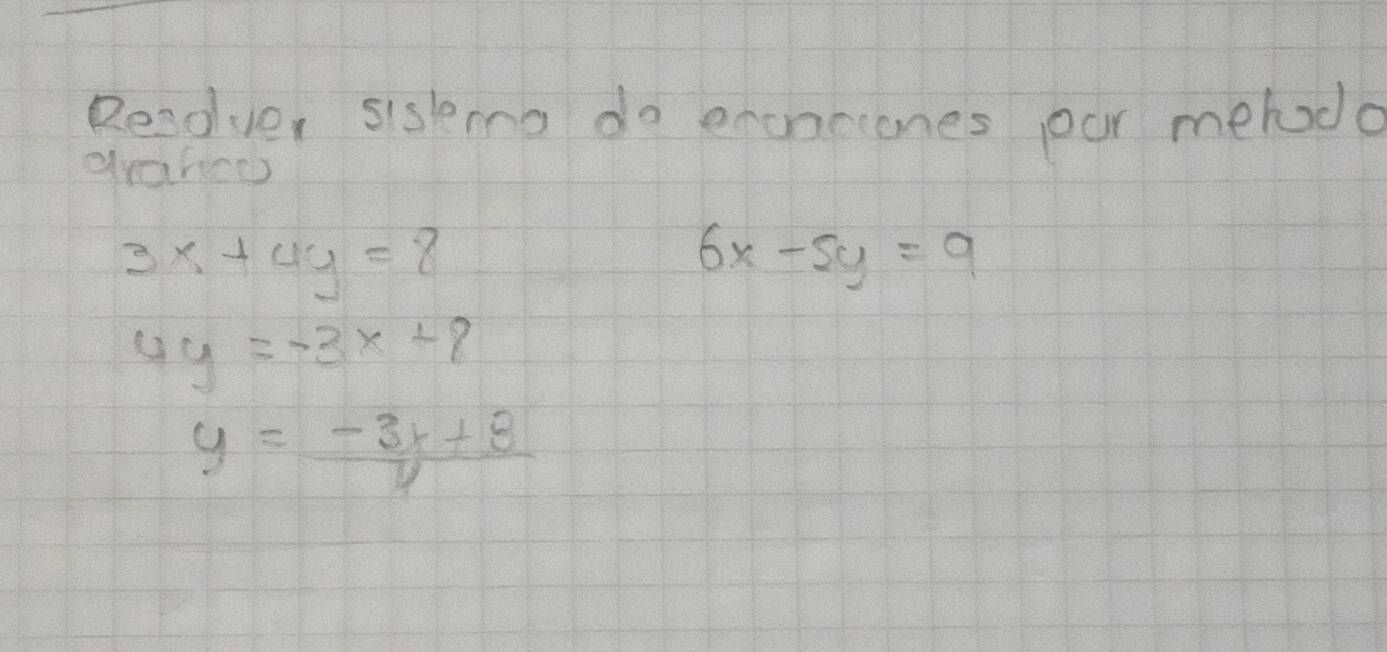 Resolver sistema de ecuaciones por metodo
grafico
3x + 4y = 8
6x - 5y = 9
4y = -3x + 8
y = -3x + 8
4